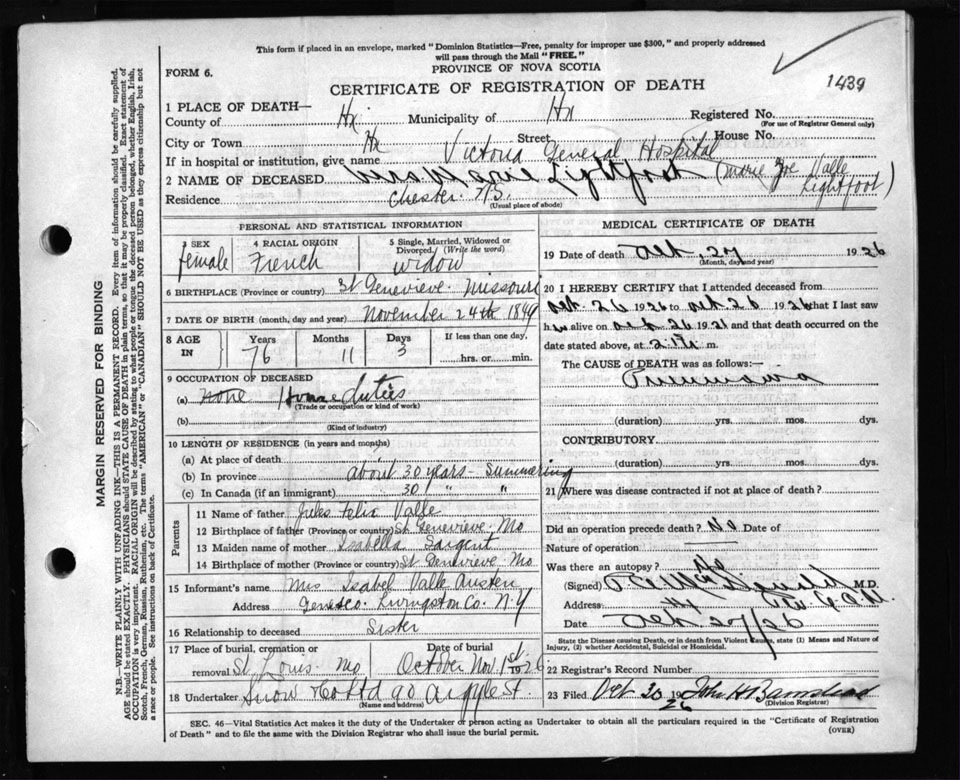 This form if placed in an envelope, marked "Dominion Statistics—Free, penalty for improper use $300," and properly addressed
will pass through the Mail "FREE."
PROVINCE OF NOVA SCOTIA
FORM 6.
CERTIFICATE OF REGISTRATION OF DEATH
1439
1 PLACE OF DEATH—
County of Hx Municipality of Hx Registered No.
(For use of Registrar General only)
City or Town Hx Street House No.
If in hospital or institution, give name Victoria General Hospital
2 NAME OF DECEASED Mrs. Marie Lightfoot (Marie Zoe Valle
Lightfoot)
Residence Chester N.S.
(Usual place of abode)
MARGIN RESERVED FOR BINDING
N.B.—WRITE PLAINLY WITH UNFADING INK—THIS IS A PERMANENT RECORD. Every item of information should be carefully supplied.
AGE should be stated EXACTLY. PHYSICIANS should STATE CAUSE OF DEATH in plain terms, so that it may be properly classified. Exact statement of
OCCUPATION is very important. RACIAL ORIGIN will be described by stating to what people or tongue the deceased person belonged, whether English, Irish,
Scotch, French, German, Russian, Ruthenian, etc. The terms "AMERICAN" or "CANADIAN" SHOULD NOT BE USED as they express citizenship but not
a race or people. See instructions on back of Certificate.
PERSONAL AND STATISTICAL INFORMATION
3 SEX
female
4 RACIAL ORIGIN
French
5 Single, Married, Widowed or
Divorced. (Write the word)
widow
6 BIRTHPLACE (Province or country) St Genevieve Missouri
7 DATE OF BIRTH (month, day and year) November 24th 1849
8 AGE IN
Years Months Days If less than one day,
76 11 3 hrs. or min.
9 OCCUPATION OF DECEASED
(a) none Home duties
(Trade or occupation or kind of work)
(b)
(Kind of industry)
10 LENGTH OF RESIDENCE (in years and months)
(a) At place of death
(b) In province about 30 years - Summering
(c) In Canada (if an immigrant) 30 " "
Parents
11 Name of father Jules Felix Valle
12 Birthplace of father (Province or country) St. Genevieve Mo
13 Maiden name of mother Isabella Sargent
14 Birthplace of mother (Province or country) St Genevieve Mo
15 Informant's name Mrs Isabel Valle Austen
Address Geneseo. Livingston Co. N.Y
16 Relationship to deceased Sister
17 Place of burial, cremation or Date of burial
removal St Louis Mo October Nov 1st 1926
18 Undertaker Snow & Co Ltd 90 Argyle St.
(Name and address)
MEDICAL CERTIFICATE OF DEATH
19 Date of death Oct. 27 1926
(Month, day and year)
20 I HEREBY CERTIFY that I attended deceased from
Oct. 26 1926 to Oct. 26 1926 that I last saw
her alive on Oct 26 1926 and that death occurred on
date stated above, at m.
The CAUSE OF DEATH was as follows:—
Pneumonia
(duration) yrs. mos. dys.
CONTRIBUTORY
(duration) yrs. mos. dys.
21 Where was disease contracted if not at place of death?
Did an operation precede death? No Date of
Nature of operation
Was there an autopsy? No
(Signed) M.D.
Address
Date Oct 27/26
State the Disease causing Death, or in death from Violent Causes, state (1) Means and Nature of
Injury, (2) whether Accidental, Suicidal or Homicidal.
22 Registrar's Record Number
23 Filed Oct 30 1926 John H Barnstead
(Division Registrar)
SEC. 46—Vital Statistics Act makes it the duty of the Undertaker or person acting as Undertaker to obtain all the particulars required in the "Certificate of Registration
of Death" and to file the same with the Division Registrar who shall issue the burial permit.
(OVER)